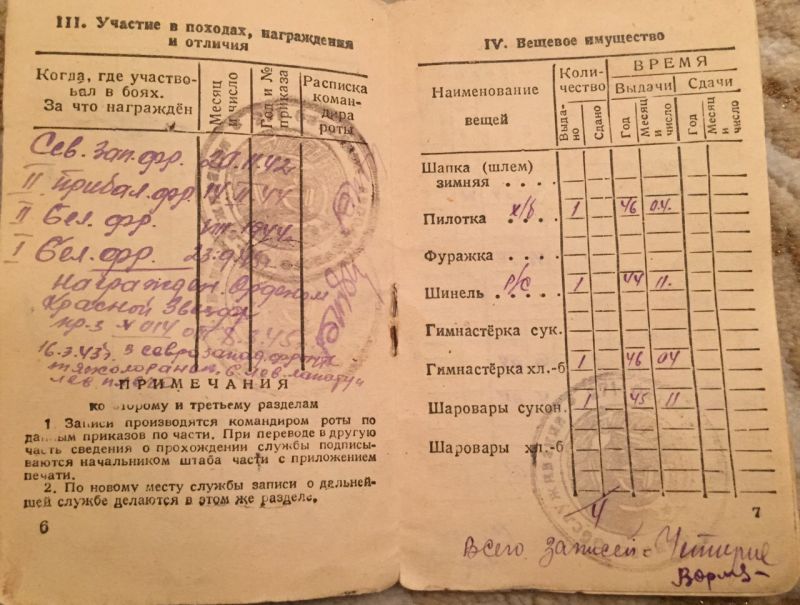 III. Участие в походах, награждения
и отличия
Когда, где участво-
вал в боях.
За что награждён
Месяц
и число
Год и №
приказа
Расписка
коман-
дира
роты
Сев. Зап. фр. 20.11.42
II Прибал. фр.
II Бел. фр. 1944
I Бел. фр.
Награжден Орденом
Красной Звезды
пр-з № 014 от 8.3.45
16.3.43 г. в северо западн. фронте
тяжело ранен в лев.
ПРИМЕЧАНИЯ
ко второму и третьему разделам
1 Записи производятся командиром роты по
данным приказов по части. При переводе в другую
часть сведения о прохождении службы подписы-
ваются начальником штаба части с приложением
печати.
2. По новому месту службы записи о дальней-
шей службе делаются в этом же разделе.
6
IV. Вещевое имущество
Наименование
вещей
Коли-
чество
ВРЕМЯ
Выдачи
Сдачи
Выда-
но
Сдано
Год
Месяц
и
число
Год
Месяц
и
число
Шапка (шлем)
зимняя . . . .
Пилотка х/б . . 1 46 04.
Фуражка . . . .
Шинель р/с . . . . 1 44 11.
Гимнастёрка сук.
Гимнастёрка хл.-б 1 46 04
Шаровары сукон. 1 45 11
Шаровары хл.-б
4
7
Всего записей - Четыре